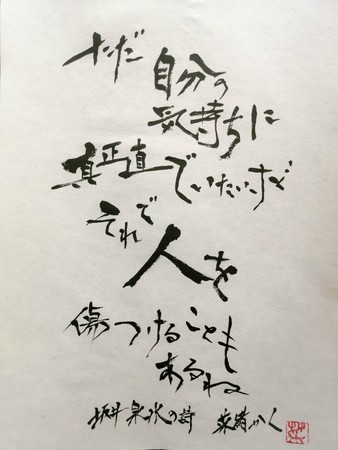 ただ
自分の
気持ちに
真正直でいたいけど
それで
人を
傷つけることも
あるね
坂井泉水の詩 菜緒かく